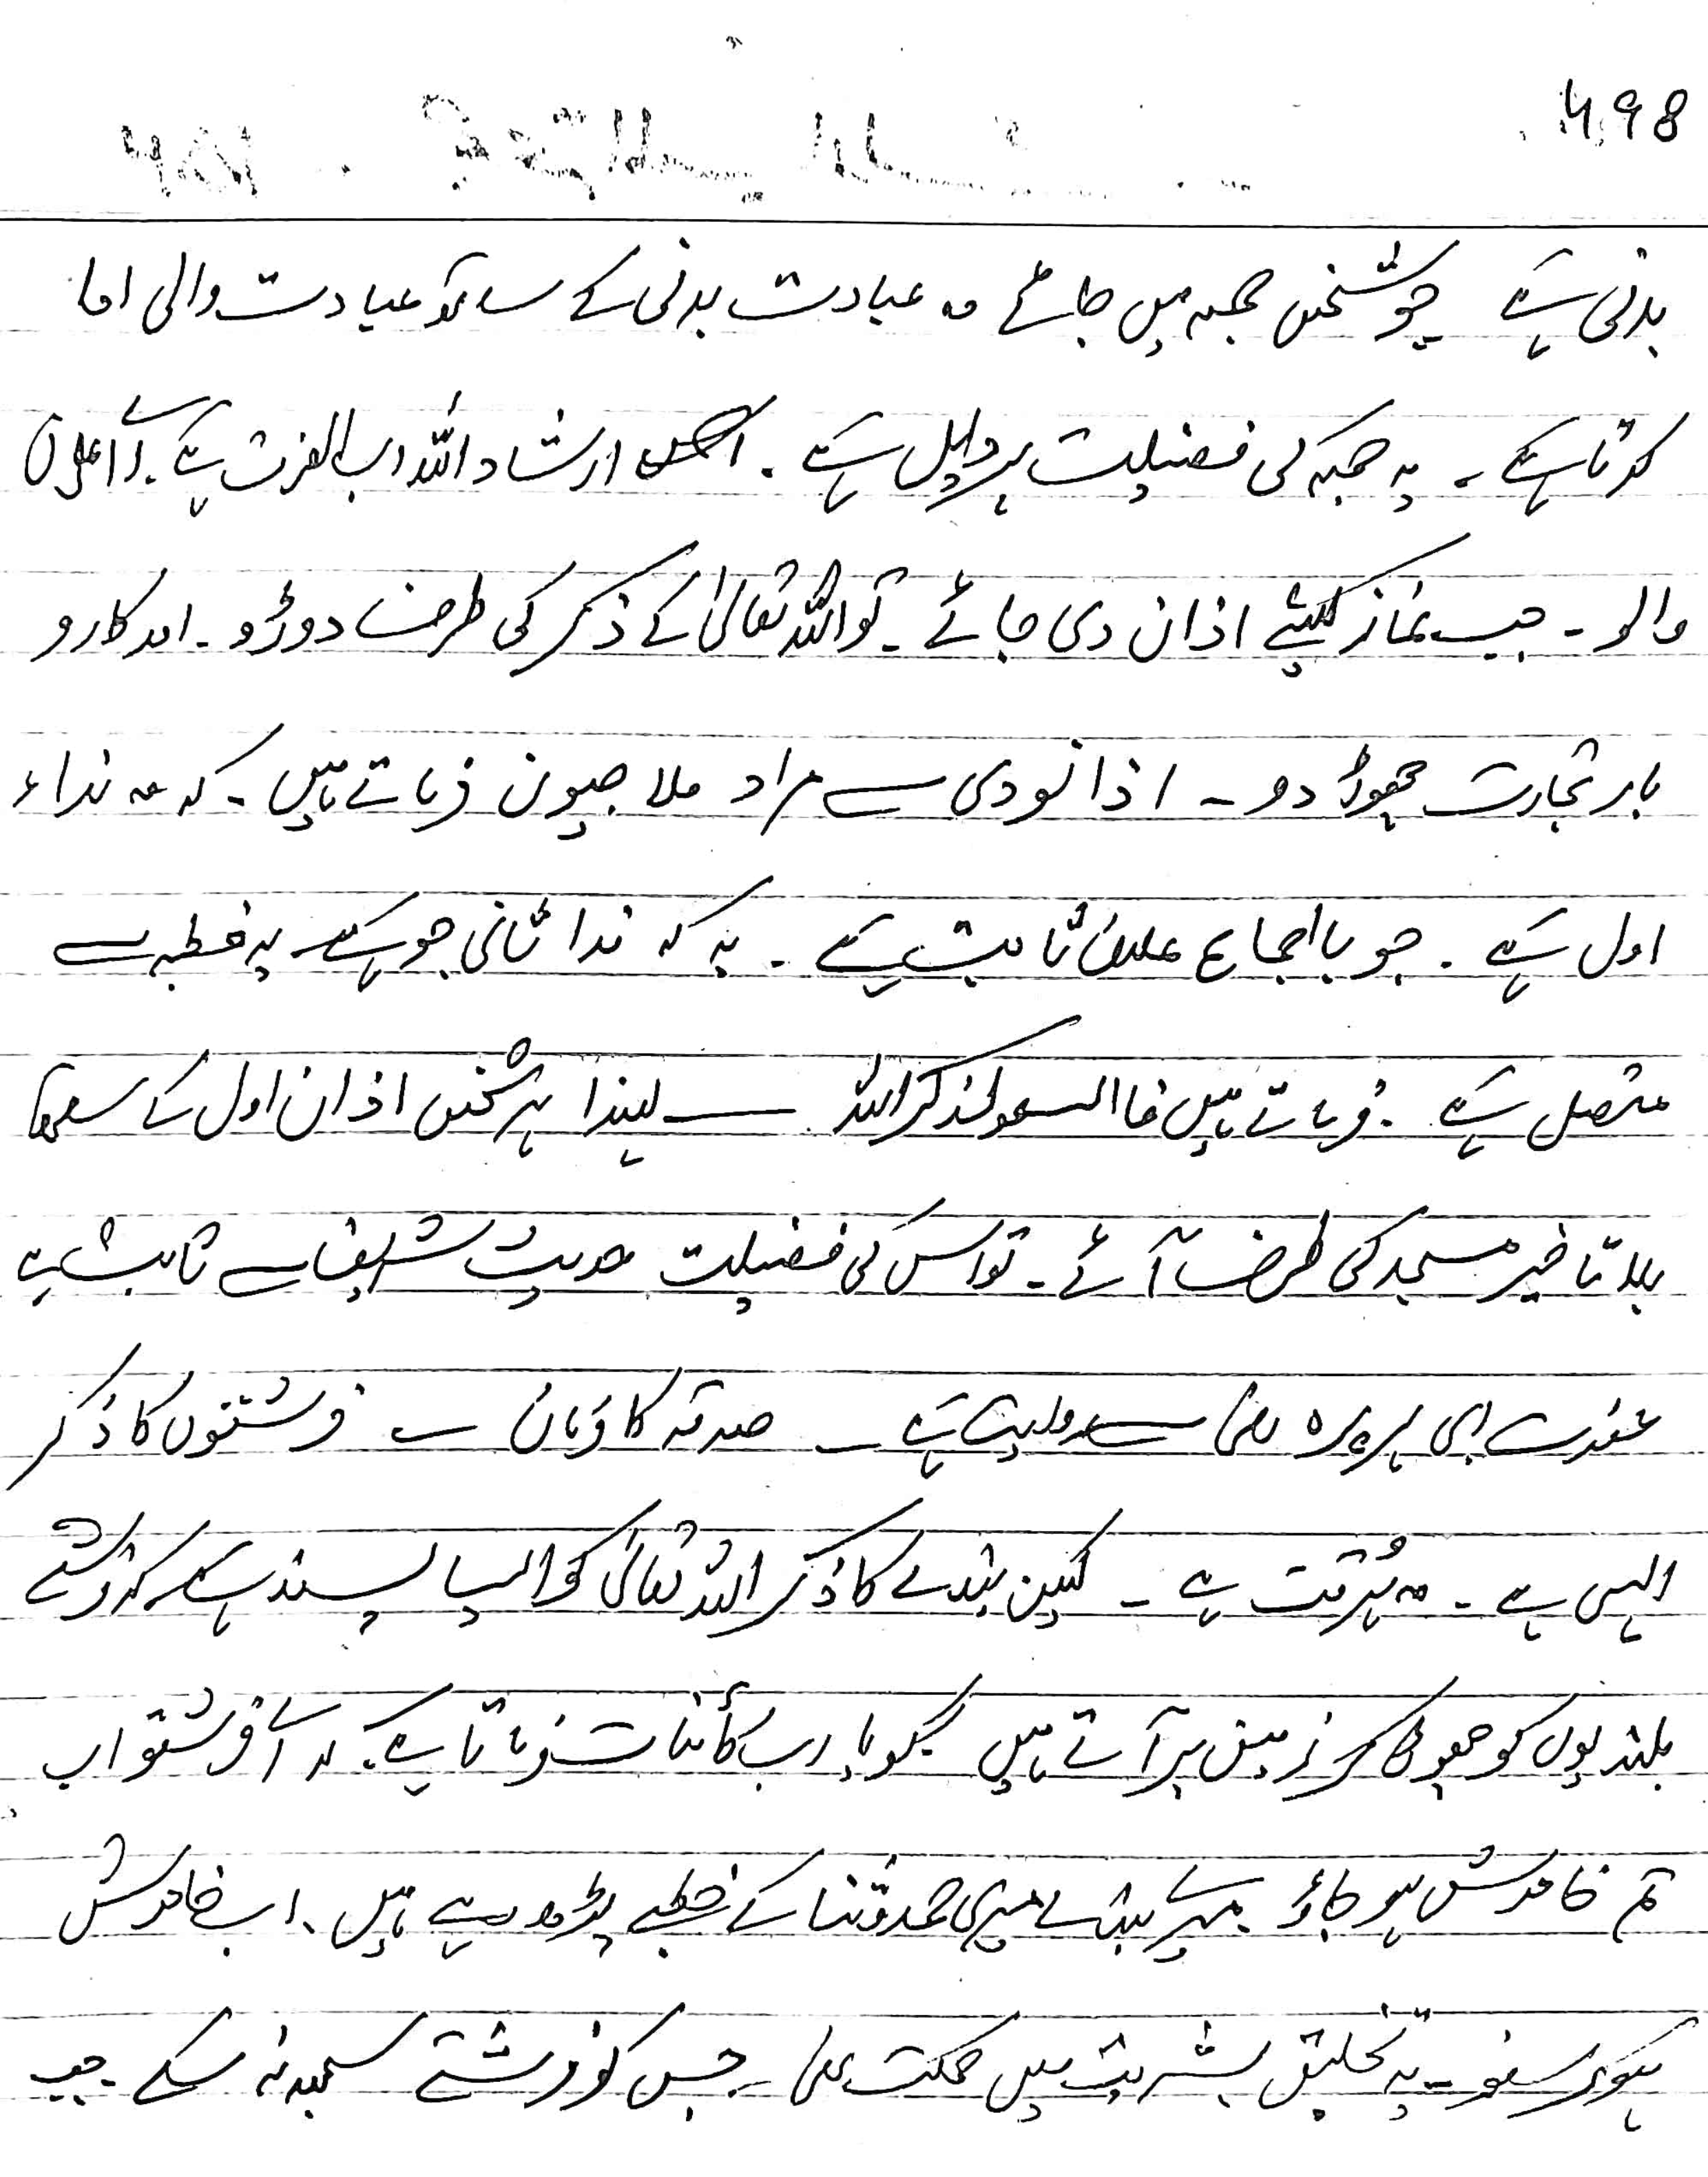 498
بدنی ہے جو شخص جمعہ میں جائے وہ عبادت بدنی کے ساتھ عبادت والی ادا
کرتا ہے ۔ یہ جمعہ کی فضیلت پر دلیل ہے ۔ ارشاد اللہ رب العزت ہے ۔ اے ایمان
والو ۔ جب نماز کیلئے اذان دی جائے ۔ تو اللہ تعالیٰ کے ذکر کی طرف دوڑو ۔ اور کارو
بار تجارت چھوڑ دو ۔ اذا نودی سے مراد ملا جیون فرماتے ہیں ۔ کہ وہ نداء
اول ہے ۔ جو بااجماع علماء ثابت ہے ۔ یہ کہ ندا ثانی جو ہے یہ خطبہ سے
متصل ہے ۔ فرماتے ہیں فا السعو لذکر اللہ ۔ لہذا ہر شخص اذان اول کے ساتھ
بلا تاخیر مسجد کی طرف آئے ۔ تو اس کی فضیلت حدیث شریف سے ثابت ہے
حضرت ابی ہریرہ سے روایت ہے ۔ صدقہ کا فرمان ۔ فرشتوں کا ذکر
الہی ہے ۔ وہ ہر وقت ہے ۔ لیکن بندے کا ذکر اللہ تعالیٰ کو ایسا پسند ہے کہ فرشتے
بلندیوں کو چھوڑ کر زمین پر آتے ہیں گویا رب کائنات فرماتا ہے ۔ کہ اے فرشتو اب
تم خاموش ہو جاؤ ۔ میرے بندے میری حمد و ثنا کے خطبے پڑھ رہے ہیں ۔ اب خاموش
ہو کر سنو ۔ یہ تخلیق بشریت میں حکمت تھی ۔ جس کو فرشتے سمجھ نہ سکے ۔ جب